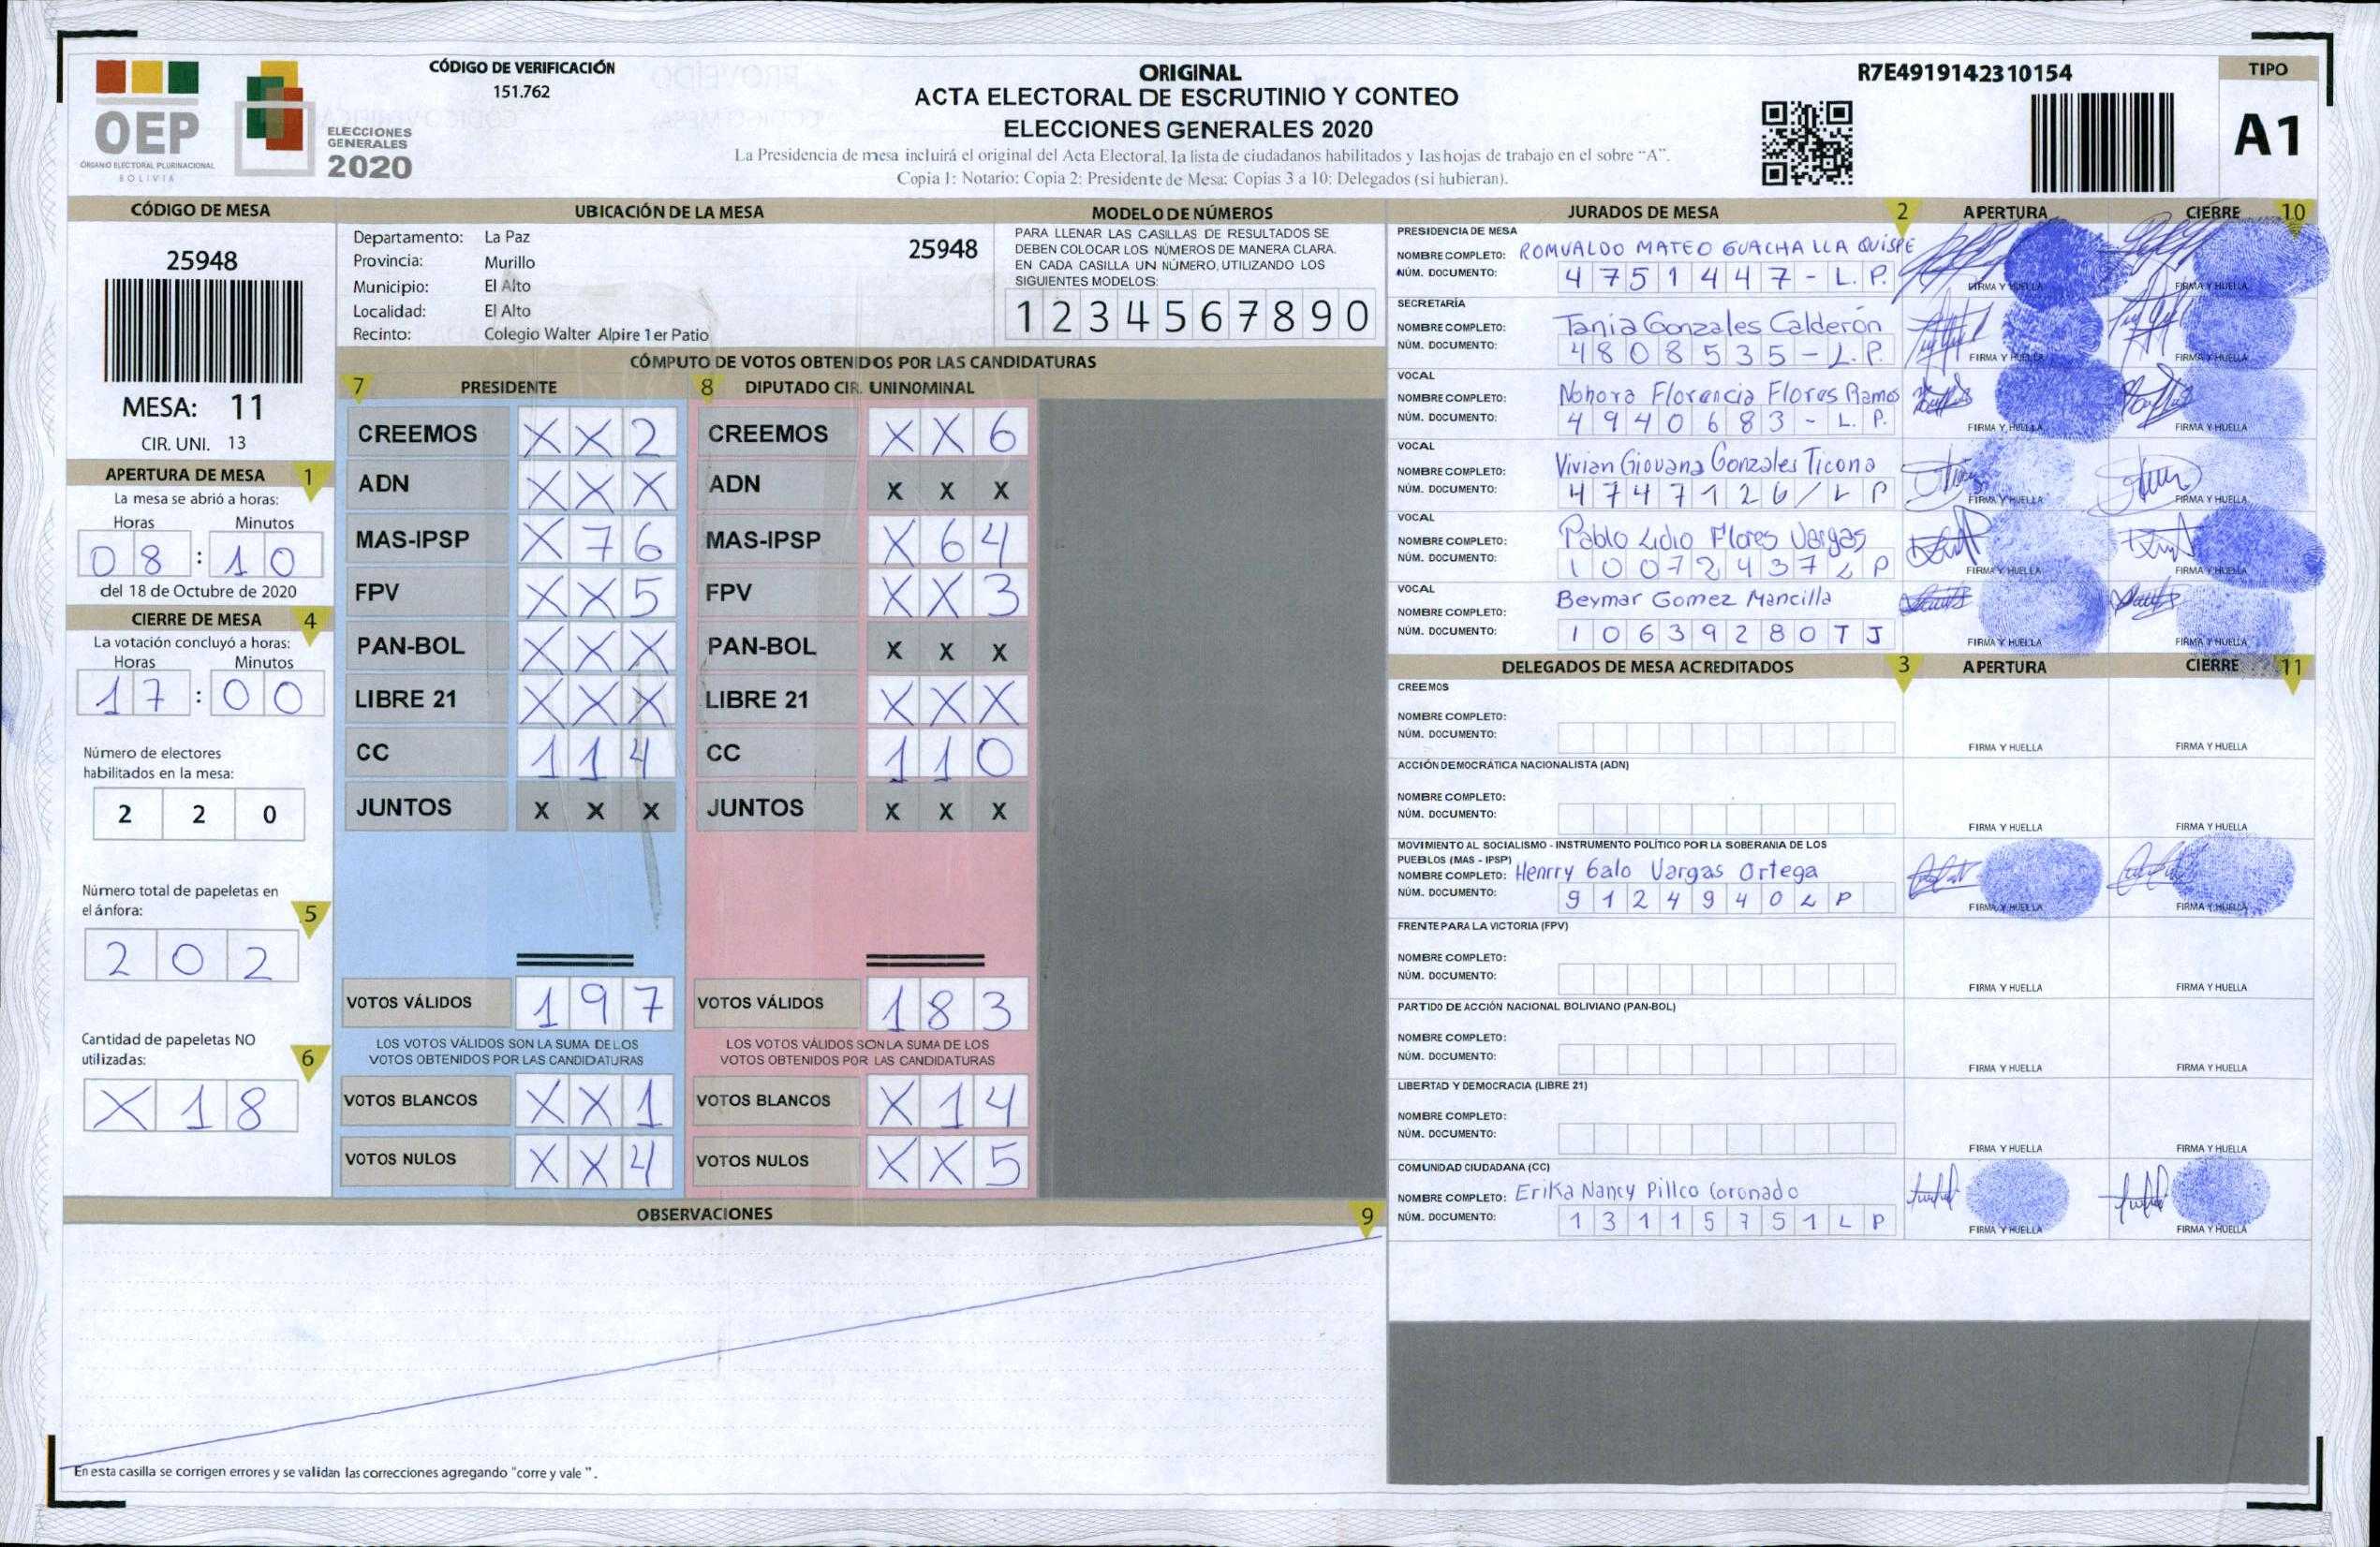 OEP
ÓRGANO ELECTORAL PLURINACIONAL
BOLIVIA
ELECCIONES
GENERALES
2020
CÓDIGO DE VERIFICACIÓN
151.762
ORIGINAL
ACTA ELECTORAL DE ESCRUTINIO Y CONTEO
ELECCIONES GENERALES 2020
La Presidencia de mesa incluirá el original del Acta Electoral, la lista de ciudadanos habilitados y las hojas de trabajo en el sobre "A".
Copia 1: Notario; Copia 2: Presidente de Mesa; Copias 3 a 10: Delegados (si hubieran).
R7E4919142310154
TIPO
A1
CÓDIGO DE MESA
25948
MESA: 11
CIR. UNI. 13
APERTURA DE MESA 1
La mesa se abrió a horas:
Horas Minutos
08 : 10
del 18 de Octubre de 2020
CIERRE DE MESA 4
La votación concluyó a horas:
Horas Minutos
17 : 00
Número de electores
habilitados en la mesa:
2 2 0
Número total de papeletas en
el ánfora: 5
2 0 2
Cantidad de papeletas NO
utilizadas: 6
X 1 8
UBICACIÓN DE LA MESA
Departamento: La Paz 25948
Provincia: Murillo
Municipio: El Alto
Localidad: El Alto
Recinto: Colegio Walter Alpire 1er Patio
MODELO DE NÚMEROS
PARA LLENAR LAS CASILLAS DE RESULTADOS SE
DEBEN COLOCAR LOS NÚMEROS DE MANERA CLARA.
EN CADA CASILLA UN NÚMERO, UTILIZANDO LOS
SIGUIENTES MODELOS:
1 2 3 4 5 6 7 8 9 0
CÓMPUTO DE VOTOS OBTENIDOS POR LAS CANDIDATURAS
7 PRESIDENTE 8 DIPUTADO CIR. UNINOMINAL
CREEMOS X X 2 CREEMOS X X 6
ADN X X X ADN X X X
MAS-IPSP X 7 6 MAS-IPSP X 6 4
FPV X X 5 FPV X X 3
PAN-BOL X X X PAN-BOL X X X
LIBRE 21 X X X LIBRE 21 X X X
CC 1 1 4 CC 1 1 0
JUNTOS X X X JUNTOS X X X
VOTOS VÁLIDOS 1 9 7 VOTOS VÁLIDOS 1 8 3
LOS VOTOS VÁLIDOS SON LA SUMA DE LOS
VOTOS OBTENIDOS POR LAS CANDIDATURAS
LOS VOTOS VÁLIDOS SON LA SUMA DE LOS
VOTOS OBTENIDOS POR LAS CANDIDATURAS
VOTOS BLANCOS X X 1 VOTOS BLANCOS X 1 4
VOTOS NULOS X X 4 VOTOS NULOS X X 5
OBSERVACIONES 9
En esta casilla se corrigen errores y se validan las correcciones agregando "corre y vale ".
JURADOS DE MESA 2 APERTURA CIERRE 10
PRESIDENCIA DE MESA
NOMBRE COMPLETO: ROMUALDO MATEO GUACHALLA QUISPE
NÚM. DOCUMENTO: 4751447-L.P.
FIRMA Y HUELLA FIRMA Y HUELLA
SECRETARÍA
NOMBRE COMPLETO: Tania Gonzales Calderón
NÚM. DOCUMENTO: 4808535-L.P.
FIRMA Y HUELLA FIRMA Y HUELLA
VOCAL
NOMBRE COMPLETO: Nohora Florencia Flores Ramos
NÚM. DOCUMENTO: 4940683-L.P.
FIRMA Y HUELLA FIRMA Y HUELLA
VOCAL
NOMBRE COMPLETO: Vivian Giovana Gonzales Ticona
NÚM. DOCUMENTO: 4747126/LP
FIRMA Y HUELLA FIRMA Y HUELLA
VOCAL
NOMBRE COMPLETO: Pablo Lidio Flores Vargas
NÚM. DOCUMENTO: 10072437LP
FIRMA Y HUELLA FIRMA Y HUELLA
VOCAL
NOMBRE COMPLETO: Beymar Gomez Mancilla
NÚM. DOCUMENTO: 10639280TJ
FIRMA Y HUELLA FIRMA Y HUELLA
DELEGADOS DE MESA ACREDITADOS 3 APERTURA CIERRE 11
CREEMOS
NOMBRE COMPLETO:
NÚM. DOCUMENTO:
FIRMA Y HUELLA FIRMA Y HUELLA
ACCIÓN DEMOCRÁTICA NACIONALISTA (ADN)
NOMBRE COMPLETO:
NÚM. DOCUMENTO:
FIRMA Y HUELLA FIRMA Y HUELLA
MOVIMIENTO AL SOCIALISMO - INSTRUMENTO POLÍTICO POR LA SOBERANIA DE LOS
PUEBLOS (MAS - IPSP)
NOMBRE COMPLETO: Henrry Galo Vargas Ortega
NÚM. DOCUMENTO: 9124940LP
FIRMA Y HUELLA FIRMA Y HUELLA
FRENTE PARA LA VICTORIA (FPV)
NOMBRE COMPLETO:
NÚM. DOCUMENTO:
FIRMA Y HUELLA FIRMA Y HUELLA
PARTIDO DE ACCIÓN NACIONAL BOLIVIANO (PAN-BOL)
NOMBRE COMPLETO:
NÚM. DOCUMENTO:
FIRMA Y HUELLA FIRMA Y HUELLA
LIBERTAD Y DEMOCRACIA (LIBRE 21)
NOMBRE COMPLETO:
NÚM. DOCUMENTO:
FIRMA Y HUELLA FIRMA Y HUELLA
COMUNIDAD CIUDADANA (CC)
NOMBRE COMPLETO: Erika Nancy Pillco Coronado
NÚM. DOCUMENTO: 13115751LP
FIRMA Y HUELLA FIRMA Y HUELLA